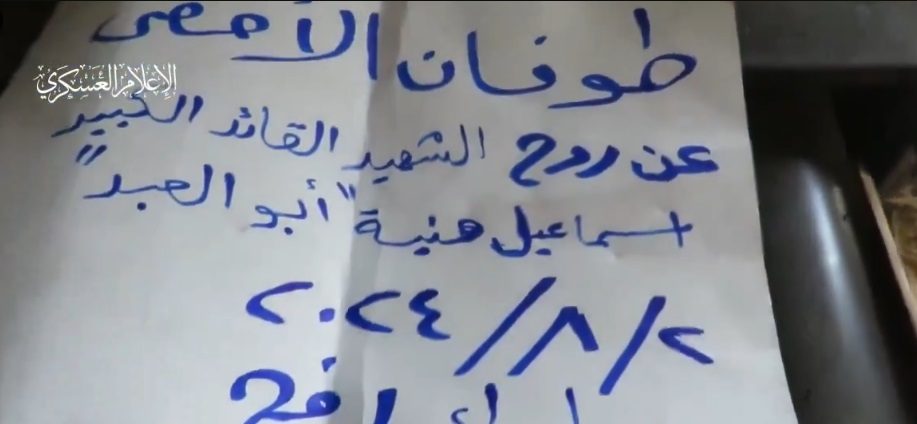 طوفان الأقصى
الإعلام العسكري
عن روح الشهيد القائد الكبير
اسماعيل هنية "أبو العبد"
٢/٨/٢٠٢٤